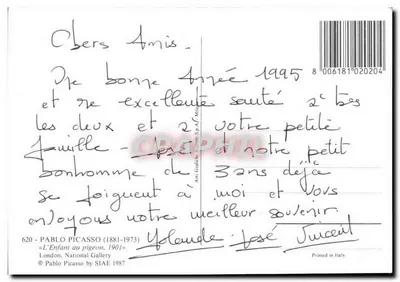 Chers Amis.
Une bonne Année 1995
et une excellente santé à tous
les deux et à votre petite
famille - José et notre petit
bonhomme de 3 ans déjà
se joignent à moi et vous
envoyons notre meilleur souvenir.
Yolande - José Vincent
8 006181 020204
620 - PABLO PICASSO (1881-1973)
«L'Enfant au pigeon, 1901»
London, National Gallery
© Pablo Picasso by SIAE 1987
Printed in Italy.